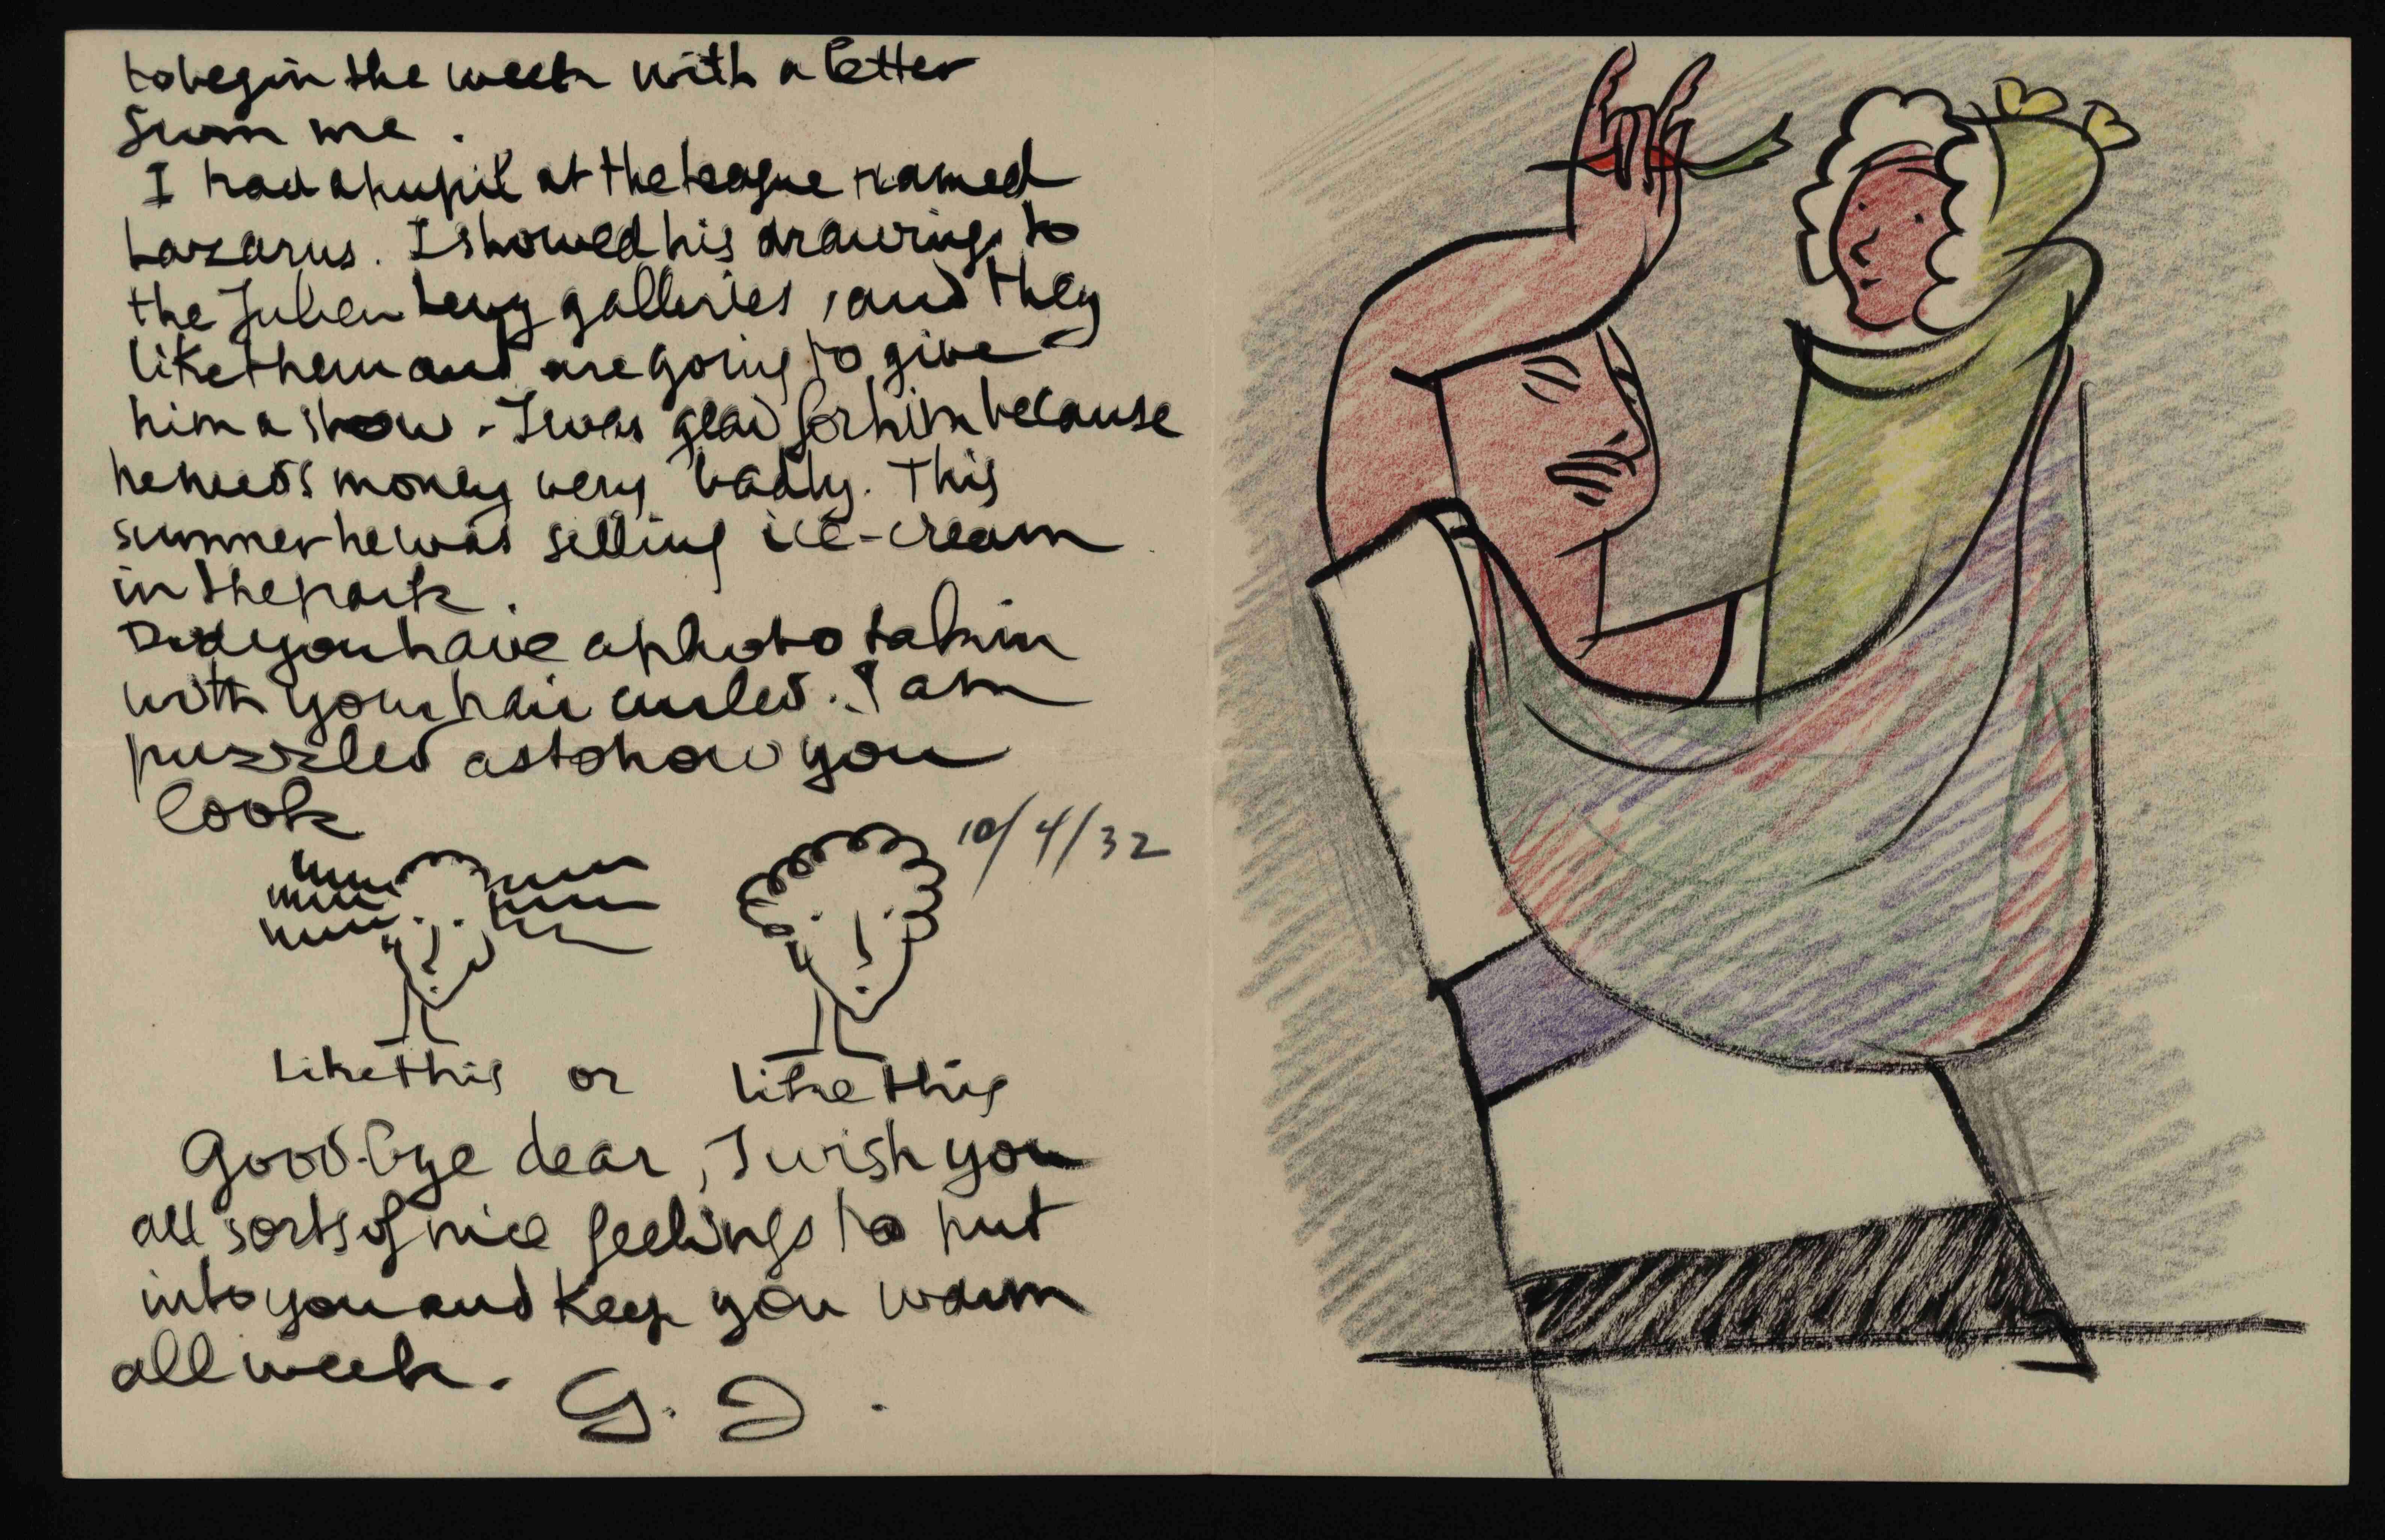 to begin the week with a letter
from me.
I had a pupil at the league named
Lazarus. I showed his drawings to
the Julien Levy galleries, and they
like them and are going to give
him a show. I was glad for him because
he needs money very badly. This
summer he was selling ice-cream
in the park.
Did you have a photo takin
with your hair curled. I am
puzzled as to how you
look
10/4/32
like this or like this
Good-bye dear, I wish you
all sorts of nice feelings to put
into you and keep you warm
all week.